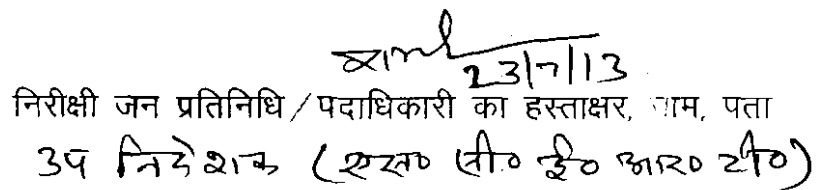 23/7/13
निरीक्षी जन प्रतिनिधि / पदाधिकारी का हस्ताक्षर, नाम, पता
उप निदेशक (एस० सी० ई० आर० टी०)